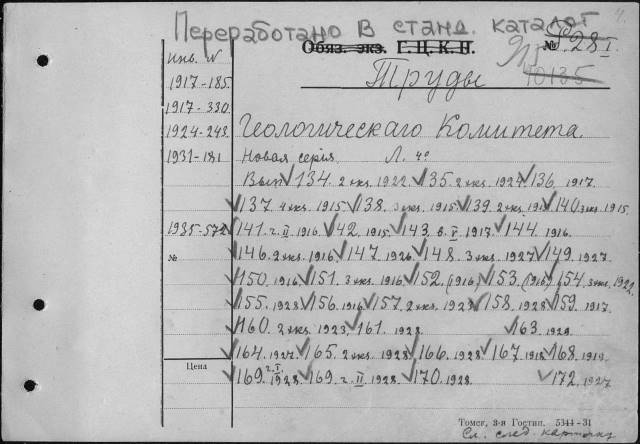 Переработано в станд. каталог
Обяз. экз. Г.Ц.К.Н.
№ 528 I.
Труды
10135
Инв. №
1917-185
1917-330
1924-243
1931-181
1935-572
№
Цена
Геологическаго Комитета.
Новая серія. Л. 4°
Вып. 134. 2 экз. 1922. 135. 2 экз. 1924. 136. 1917.
137. 4 экз. 1915. 138. 3 экз. 1915. 139. 2 экз. 140. 3 экз. 1915.
141. ч. II 1916. 142. 1915. 143. в. I 1917. 144. 1916.
146. 2 экз. 1916. 147. 1926. 148. 3 экз. 1927. 149. 1927.
150. 1916. 151. 3 экз. 1916. 152. (1916). 153. (1916). 154. 3 экз. 1922.
155. 1928. 156. 1916. 157. 2 экз. 1923. 158. 1928. 159. 1917.
160. 2 экз. 1923. 161. 1928. 163. 1929.
164. 1927. 165. 2 экз. 1928. 166. 1928. 167. 1918. 168. 1919.
169. ч. I 1928. 169. ч. II 1928. 170. 1928. 172. 1927
Томск, 3-я Гостип. 5344-31
См. след. карточку